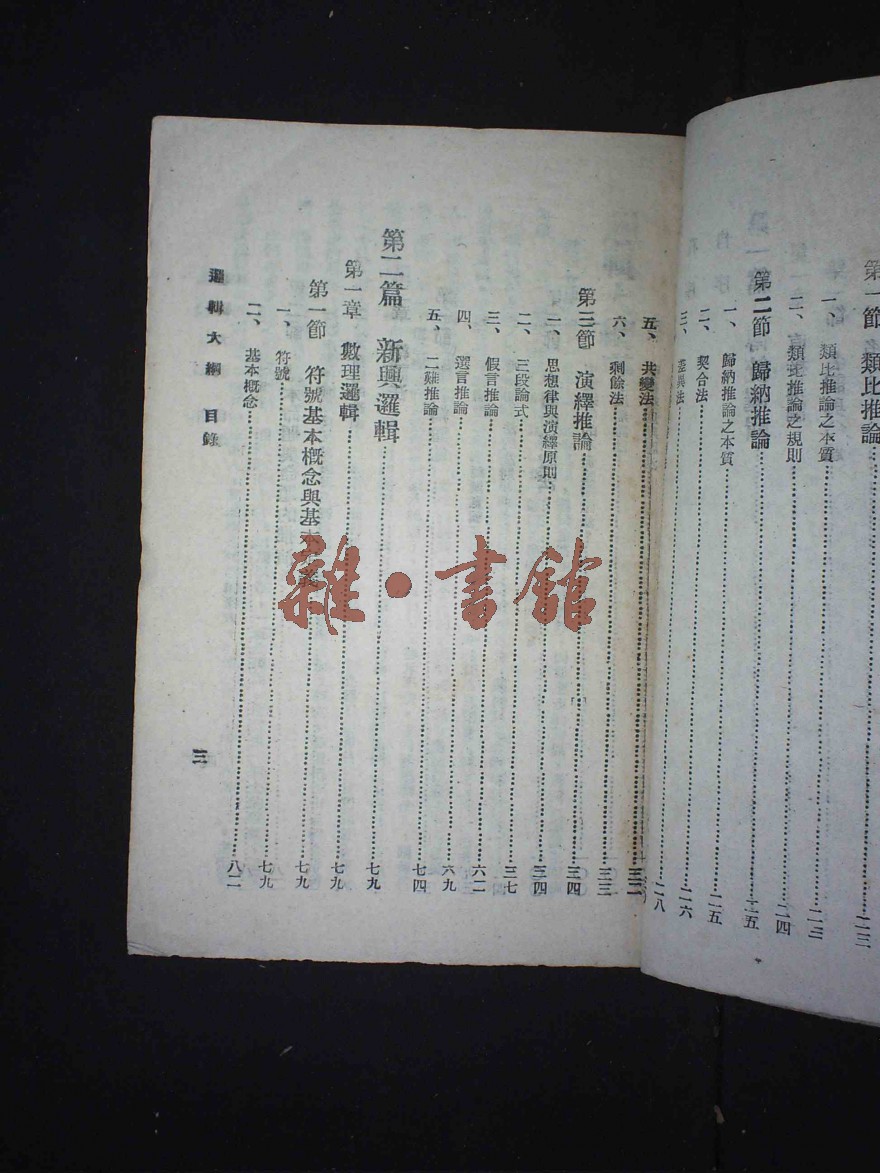 第一節 類比推論……二三
一、類比推論之本質……二三
二、類比推論之規則……二四
第二節 歸納推論……二五
一、歸納推論之本質……二五
二、契合法……二六
三、差異法……二八
五、共變法……三二
六、剩餘法……三三
第三節 演繹推論……三四
一、思想律與演繹原則……三四
二、三段論式……三七
三、假言推論……六二
四、選言推論……六九
五、二難推論……七四
第二篇 新興邏輯……七九
第一章 數理邏輯……七九
第一節 符號基本概念與基本……七九
一、符號……七九
二、基本概念……八二
邏輯大綱 目錄
三
雜·書館